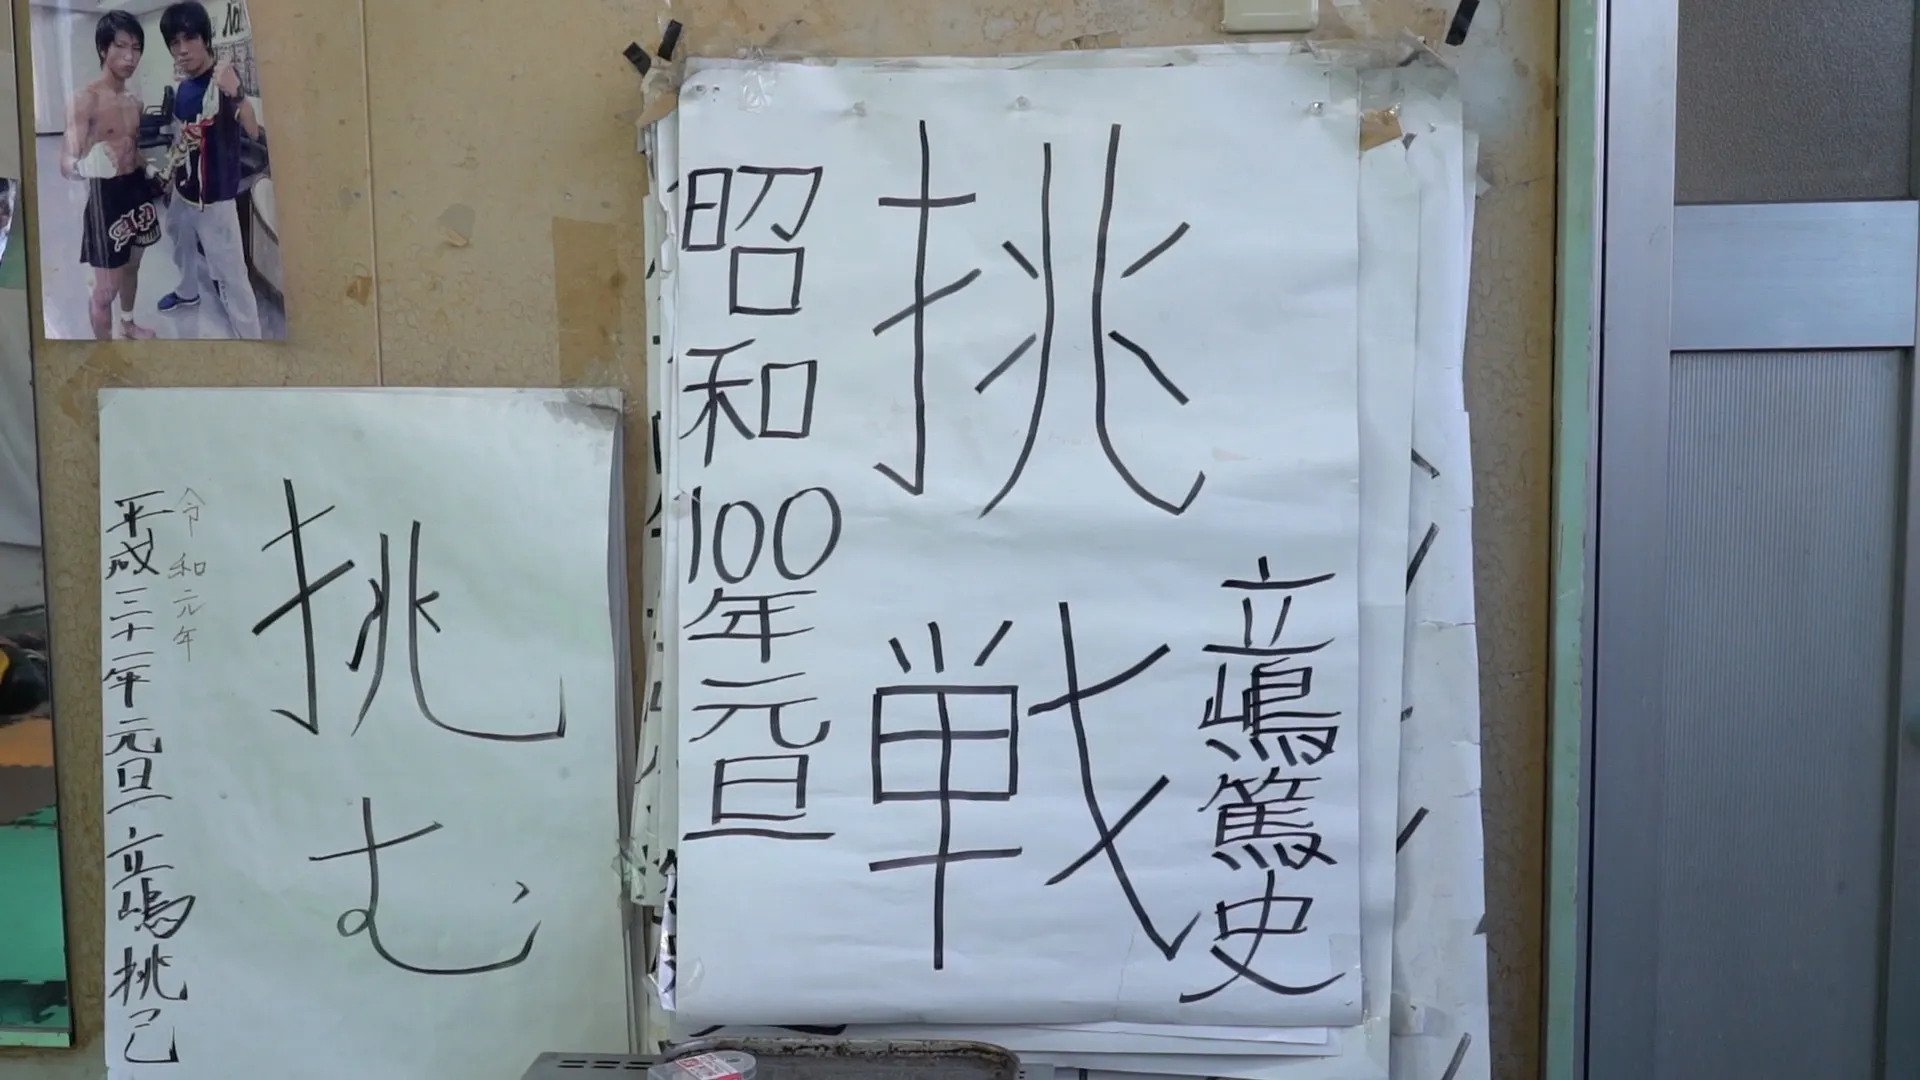 挑戦
昭和100年元旦
立嶋篤史
挑む
令和元年
平成三十一年元旦
立嶋挑己